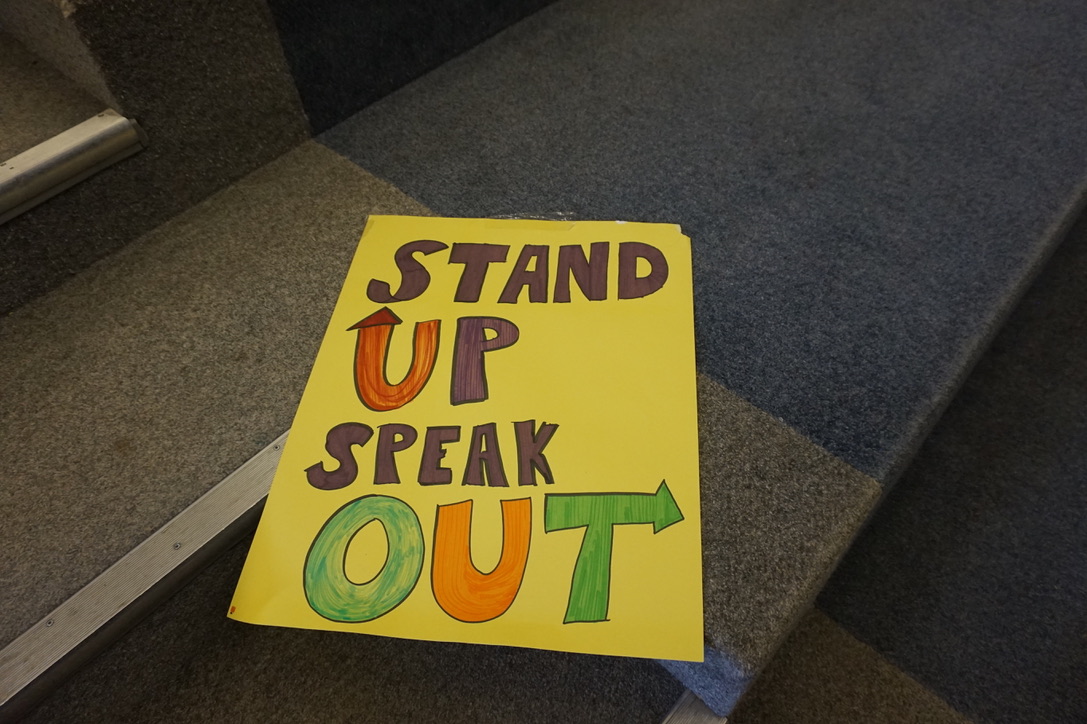 STAND
UP
SPEAK
OUT